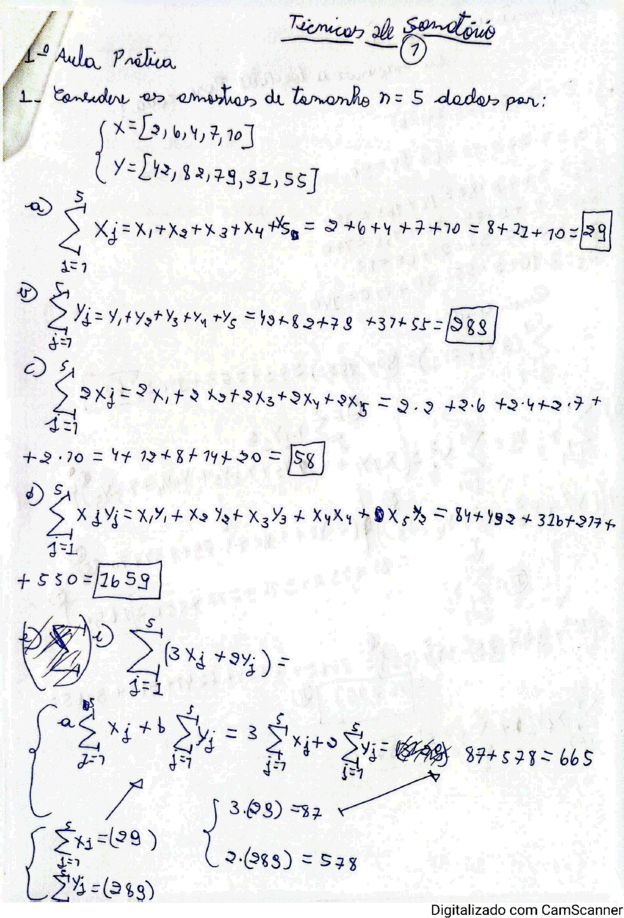 Técnicas de Somatório
1
1ª Aula Prática
1- Considere as amostras de tamanho n = 5 dadas por:
X = [2, 6, 4, 7, 10]
Y = [42, 82, 79, 31, 55]
a) 5 ∑ j=1 Xj = X1 + X2 + X3 + X4 + X5 = 2 + 6 + 4 + 7 + 10 = 8 + 11 + 10 = 29
b) 5 ∑ j=1 Yj = Y1 + Y2 + Y3 + Y4 + Y5 = 42 + 82 + 79 + 31 + 55 = 289
c) 5 ∑ j=1 2Xj = 2X1 + 2X2 + 2X3 + 2X4 + 2X5 = 2·2 + 2·6 + 2·4 + 2·7 +
+ 2·10 = 4 + 12 + 8 + 14 + 20 = 58
d) 5 ∑ j=1 XjYj = X1Y1 + X2Y2 + X3Y3 + X4X4 + X5Y2 = 84 + 492 + 316 + 217 +
+ 550 = 1659
e) 5 ∑ j=1 (3Xj + 2Yj) =
a 5 ∑ j=1 Xj + b 5 ∑ j=1 Yj = 3 5 ∑ j=1 Xj + 2 5 ∑ j=1 Yj = 87 + 578 = 665
3·(29) = 87
5 ∑ j=1 X1 = (29)
2·(289) = 578
5 ∑ Yj = (289)
Digitalizado com CamScanner